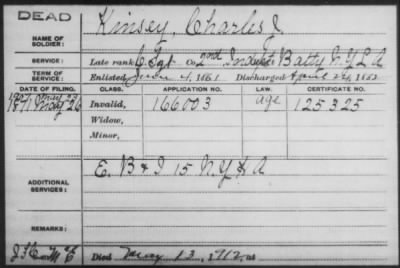 DEAD
Kinsey, Charles J
NAME OF SOLDIER:
SERVICE: Late rank C. Sgt Co. 2nd Indpt Batty N.Y. L A
TERM OF SERVICE: Enlisted June 4, 1861 Discharged April 24, 1862
DATE OF FILING. CLASS. APPLICATION NO. LAW. CERTIFICATE NO.
May 26 Invalid, 166003 age 125325
Widow,
Minor,
ADDITIONAL SERVICES: E. B & I 15 N.Y. A
REMARKS:
Died May 13, 1912, at